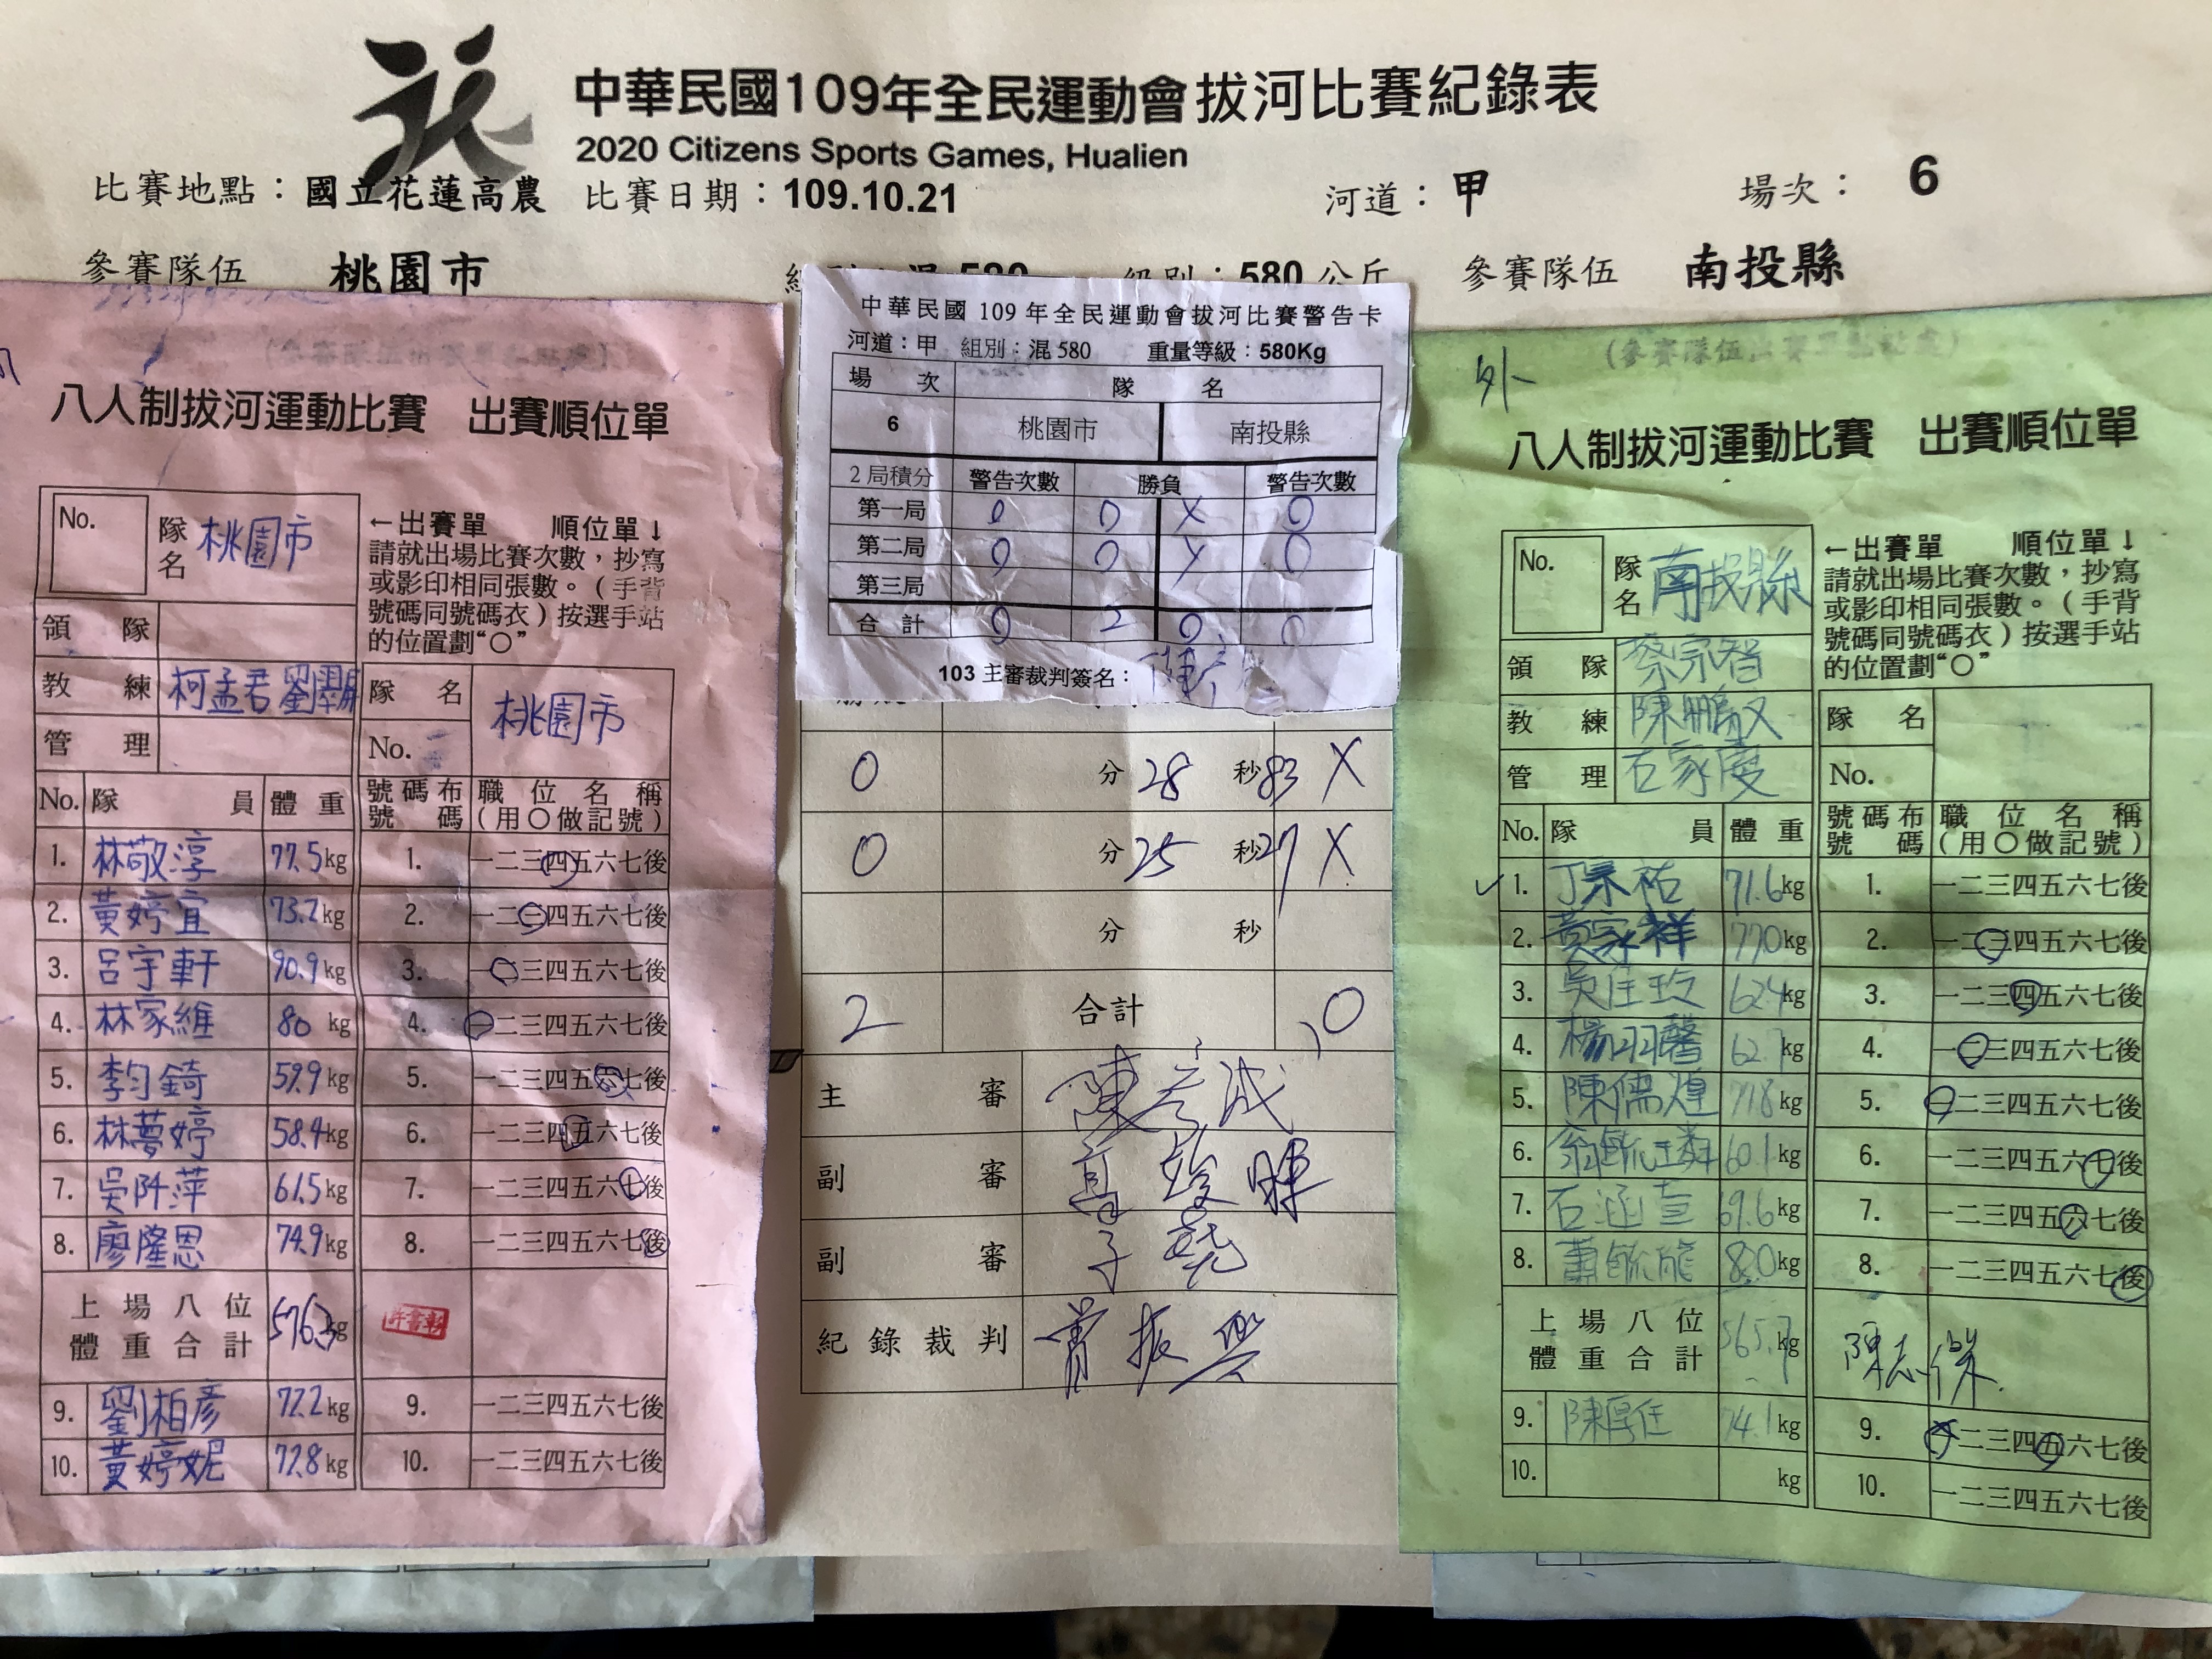 中華民國109年全民運動會拔河比賽紀錄表
2020 Citizens Sports Games, Hualien
比賽地點：國立花蓮高農 比賽日期：109.10.21 河道：甲 場次： 6
參賽隊伍 桃園市 580 級別：580 公斤 參賽隊伍 南投縣
八人制拔河運動比賽 出賽順位單
No. 隊名 桃園市
←出賽單 順位單↓
請就出場比賽次數，抄寫
或影印相同張數。（手背
號碼同號碼衣）按選手站
的位置劃“〇”
領 隊
教 練 柯孟君
管 理
隊 名 桃園市
No.
No. 隊 員 體 重 號碼布號碼 職位名稱（用〇做記號）
1. 林敬淳 77.5kg 1. 一二三四五六七後
2. 黃婷宜 73.2kg 2. 一二三四五六七後
3. 呂宇軒 90.9kg 3. 一二三四五六七後
4. 林家維 80 kg 4. 一二三四五六七後
5. 李均錡 59.9kg 5. 一二三四五六七後
6. 林夢婷 58.4kg 6. 一二三四五六七後
7. 吳阡萍 61.5kg 7. 一二三四五六七後
8. 廖隆恩 74.9kg 8. 一二三四五六七後
上場八位體重合計 576.3kg
9. 劉柏彥 72.2kg 9. 一二三四五六七後
10. 黃婷妮 72.8kg 10. 一二三四五六七後
中華民國 109 年全民運動會拔河比賽警告卡
河道：甲 組別：混 580 重量等級：580Kg
場 次 隊 名
6 桃園市 南投縣
2 局積分 警告次數 勝負 警告次數
第一局 0 0 X 0
第二局 0 0 X 0
第三局
合 計 0 2 0 0
103 主審裁判簽名：
0 分 28 秒 83 X
0 分 25 秒 27 X
分 秒
2 合計 0
主 審
副 審
副 審
紀錄裁判
外
八人制拔河運動比賽 出賽順位單
No. 隊名 南投縣
←出賽單 順位單↓
請就出場比賽次數，抄寫
或影印相同張數。（手背
號碼同號碼衣）按選手站
的位置劃“〇”
領 隊 蔡宗智
教 練 陳鵬
管 理 石家慶
隊 名
No.
No. 隊 員 體 重 號碼布號碼 職位名稱（用〇做記號）
1. 祐 71.6kg 1. 一二三四五六七後
2. 黃家祥 77.0kg 2. 一二三四五六七後
3. 吳佳玫 62.4kg 3. 一二三四五六七後
4. 楊羽馨 62.7kg 4. 一二三四五六七後
5. 陳儒煌 77.8kg 5. 一二三四五六七後
6. 60.1kg 6. 一二三四五六七後
7. 石涵 69.6kg 7. 一二三四五六七後
8. 82.0kg 8. 一二三四五六七後
上場八位體重合計 565.7kg 陳志傑
9. 陳厚任 74.1kg 9. 一二三四五六七後
10. kg 10. 一二三四五六七後